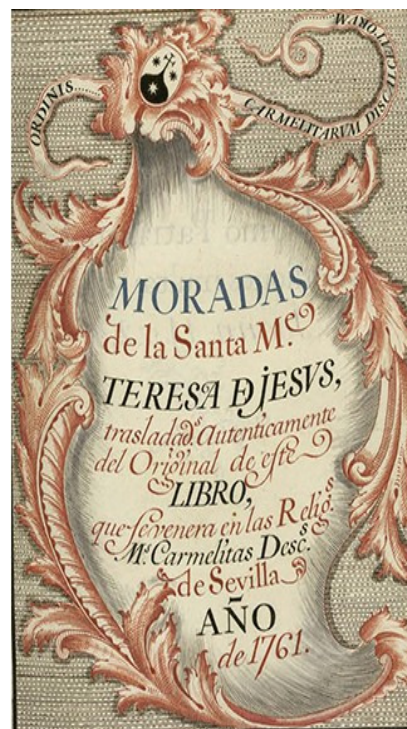 ORDINIS
CARMELITARVM DISCALCEATORVM
MORADAS
de la Santa M.e
TERESA DE JESVS,
trasladad.s autenticamente
del Original de este
LIBRO,
que se venera en las Relig.s
M.s Carmelitas Desc.s
de Sevilla
AÑO
de 1761.